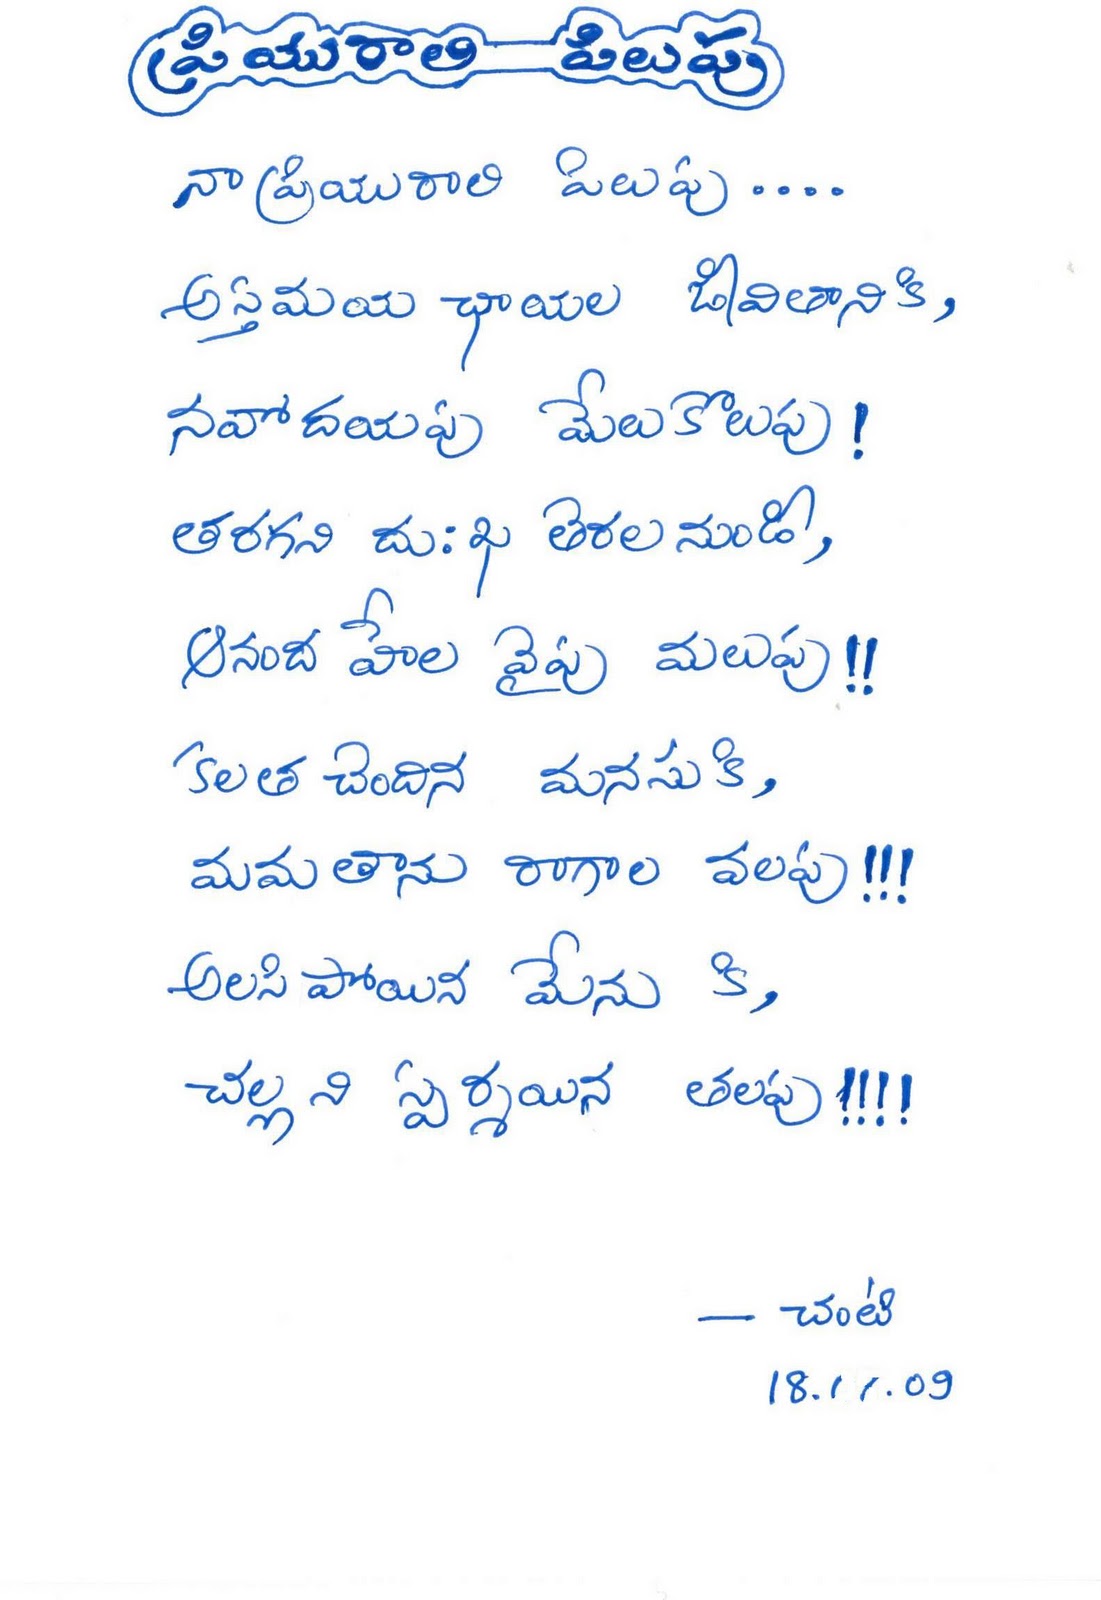 ప్రియురాలి పిలుపు
నా ప్రియురాలి పిలుపు....
అస్తమయ ఛాయల జీవితానికి,
నవోదయపు మేలుకొలుపు!
తరగని దు:ఖ తెరలనుండి,
ఆనంద హేల వైపు మలుపు!!
కలత చెందిన మనసుకి,
మమతాను రాగాల వలపు!!!
అలసి పోయిన మేను కి,
చల్లని స్పర్శయిన తలపు!!!!
— చంటి
18.11.09